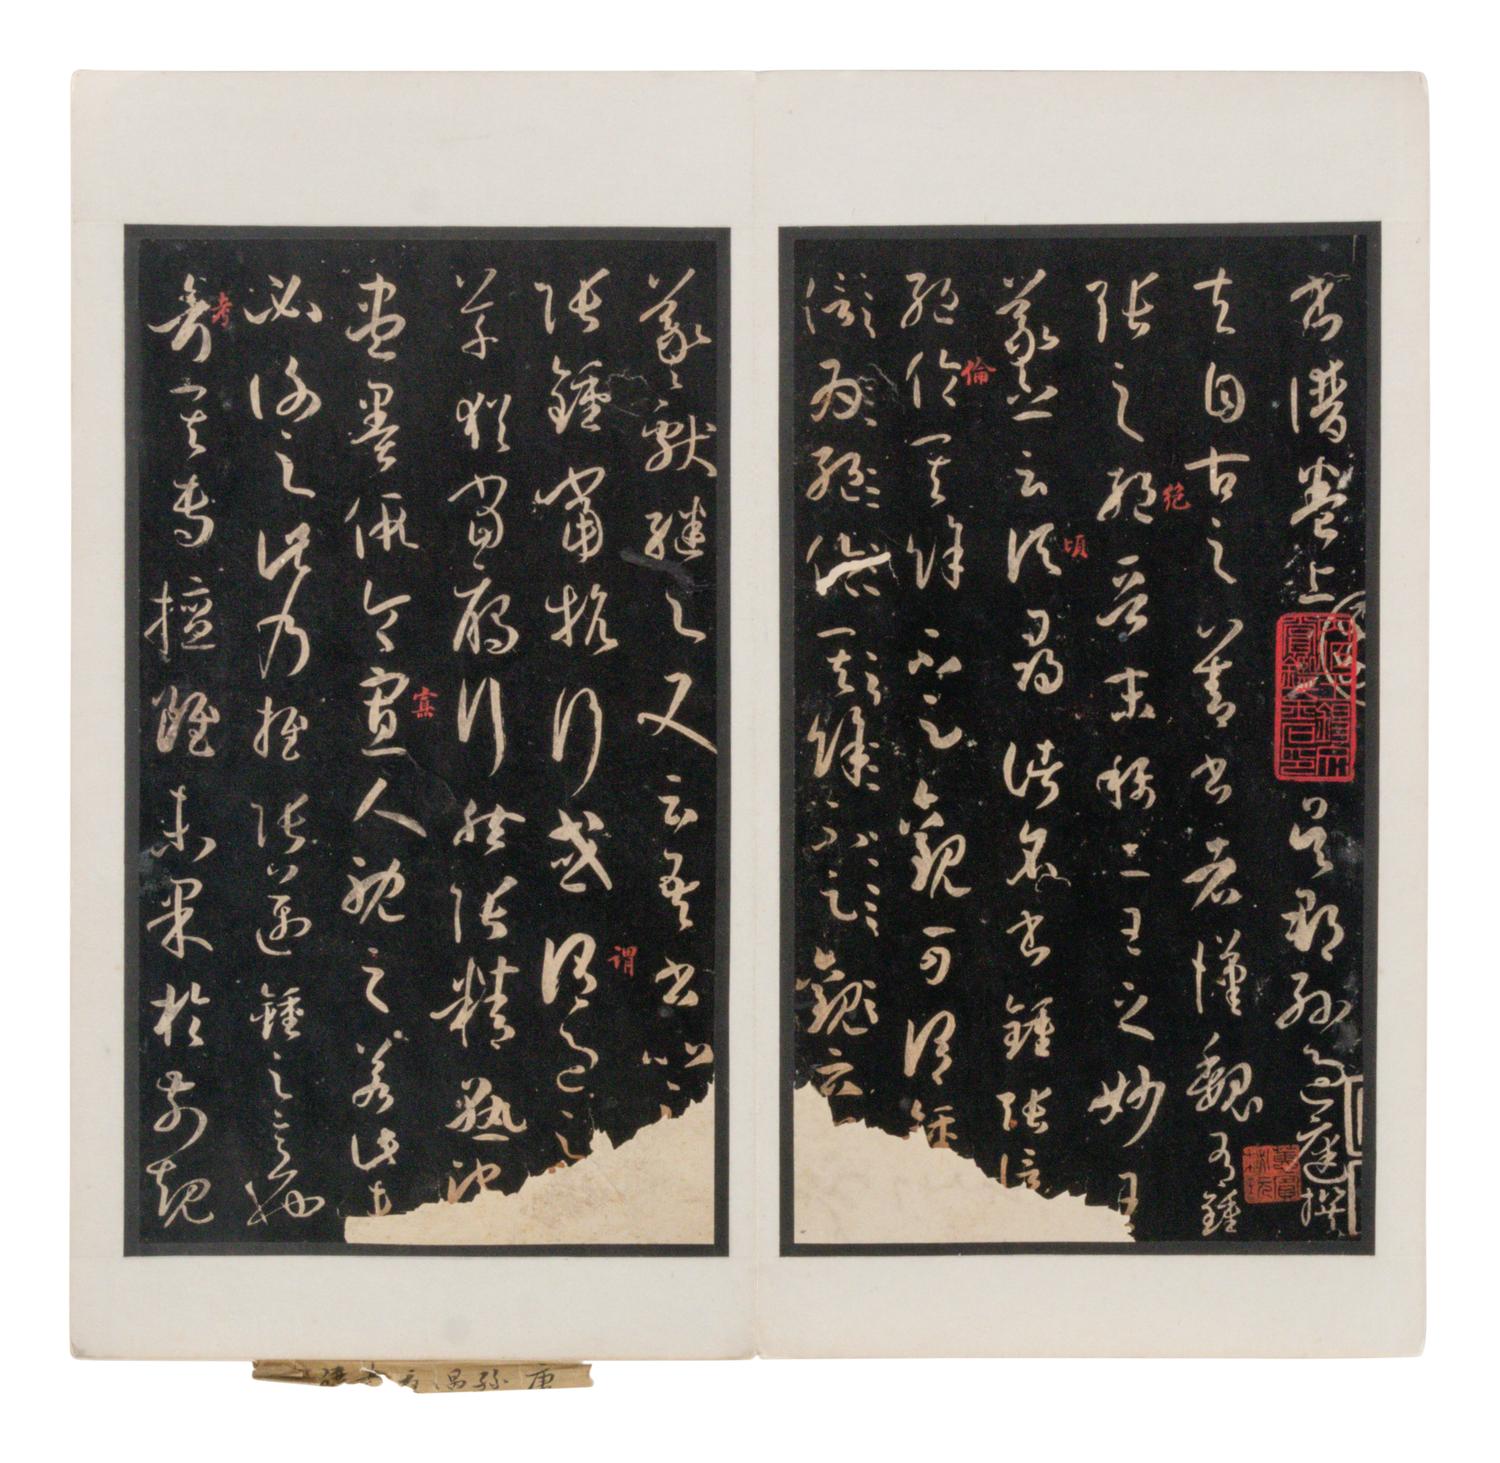 書譜卷上 吳郡孫過庭撰
夫自古之善書者漢魏有鍾
張之絕晉末稱二王之妙王
羲之云頃尋諸名書鍾張信
絕倫其餘不足觀可謂鍾
信為絕倫其餘不足觀云
羲獻繼之又云吾書比
張鍾當抗行或謂過之
草猶當鴈行然張精熟池
盡墨假令寡人耽之若此未
必謝之此乃推張邁鍾之意也
考其專擅雖未果於前規
絕
頃
倫
謂
寡
考
唐孫過庭書譜